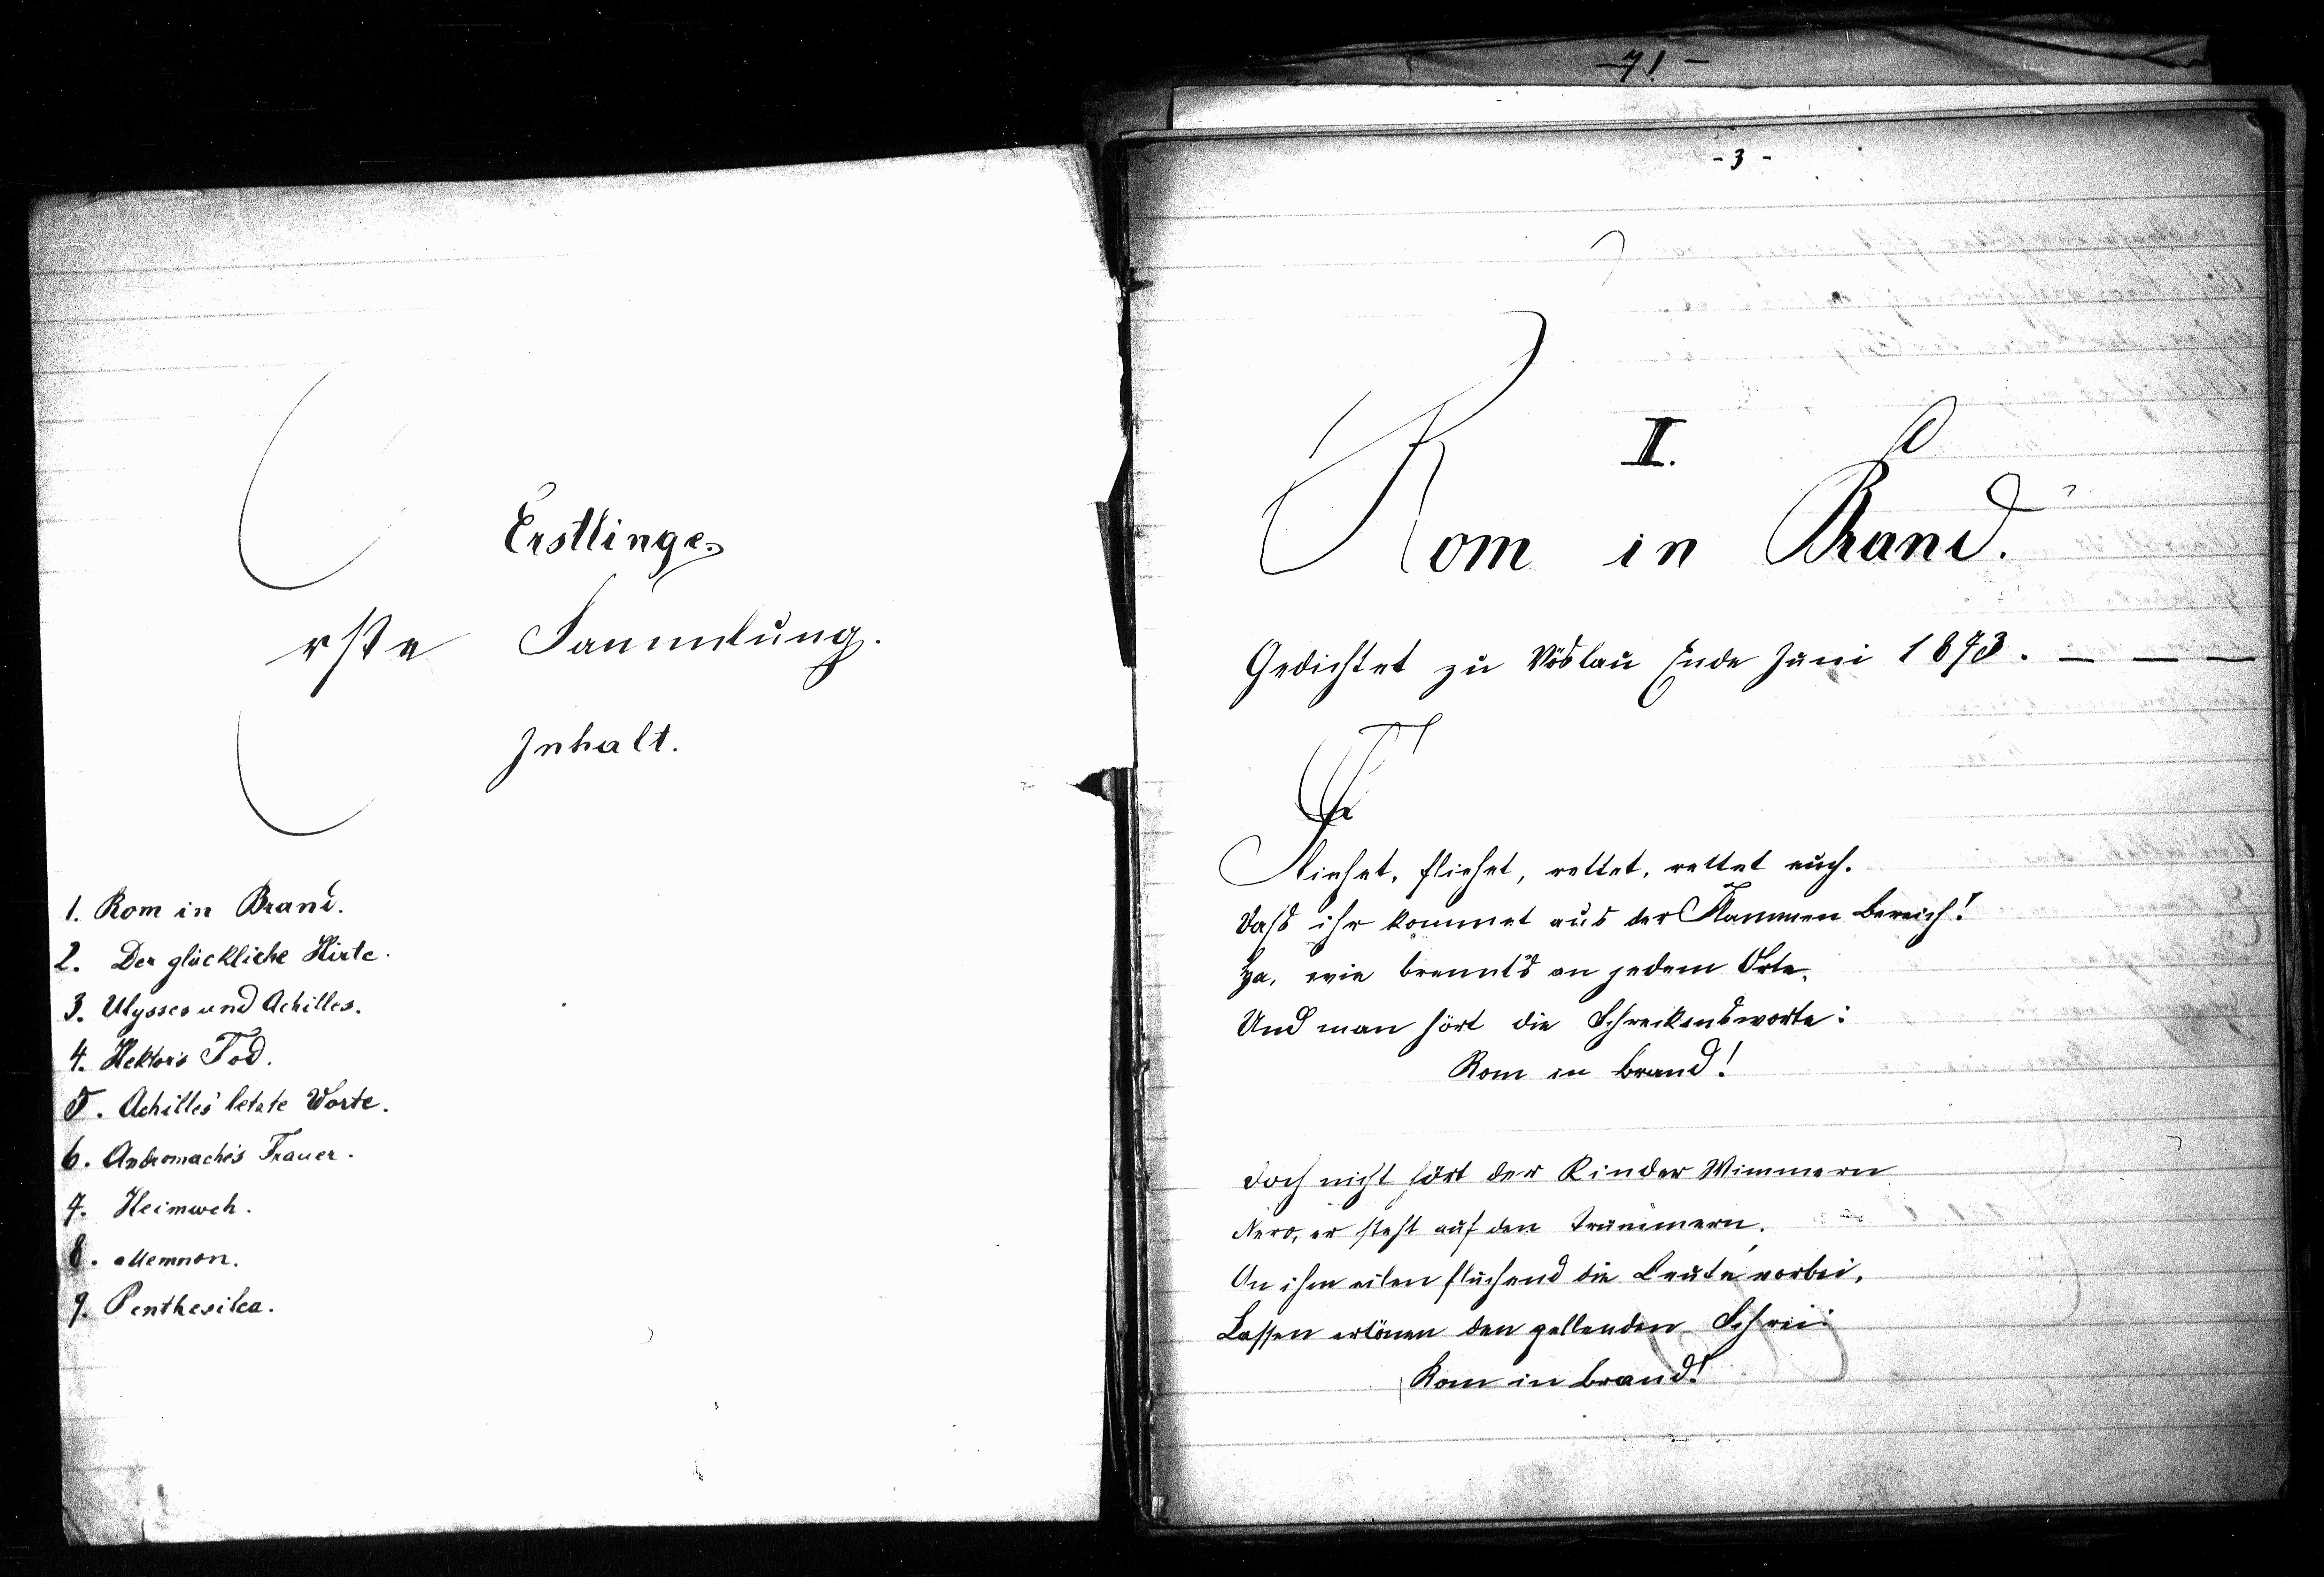 Erstlinge.
Erste Sammlung.
Inhalt.
1. Rom in Brand.
2. Der glückliche Hirte.
3. Ulysses und Achilles.
4. Hektor's Tod.
5. Achilles' letzte Worte.
6. Andromache's Trauer.
7. Heimweh.
8. Memnon.
9. Penthesilea.
- 71 -
- 3 -
I.
Rom in Brand.
Gedichtet zu Vöslau Ende Juni 1873. — — —
Fliehet, fliehet, rettet, rettet euch.
Daß ihr kommet aus der Flammen Bereich!
Ha, wie brennt's an jedem Orte,
Und man hört die Schreckensworte:
Rom in Brand!
Doch nicht hört der Kinder Wimmern
Nero, er steht auf den Trümmern.
An ihm eilen fluchend die Leute vorbei,
Lassen ertönen den gellenden Schrei:
Rom in Brand!